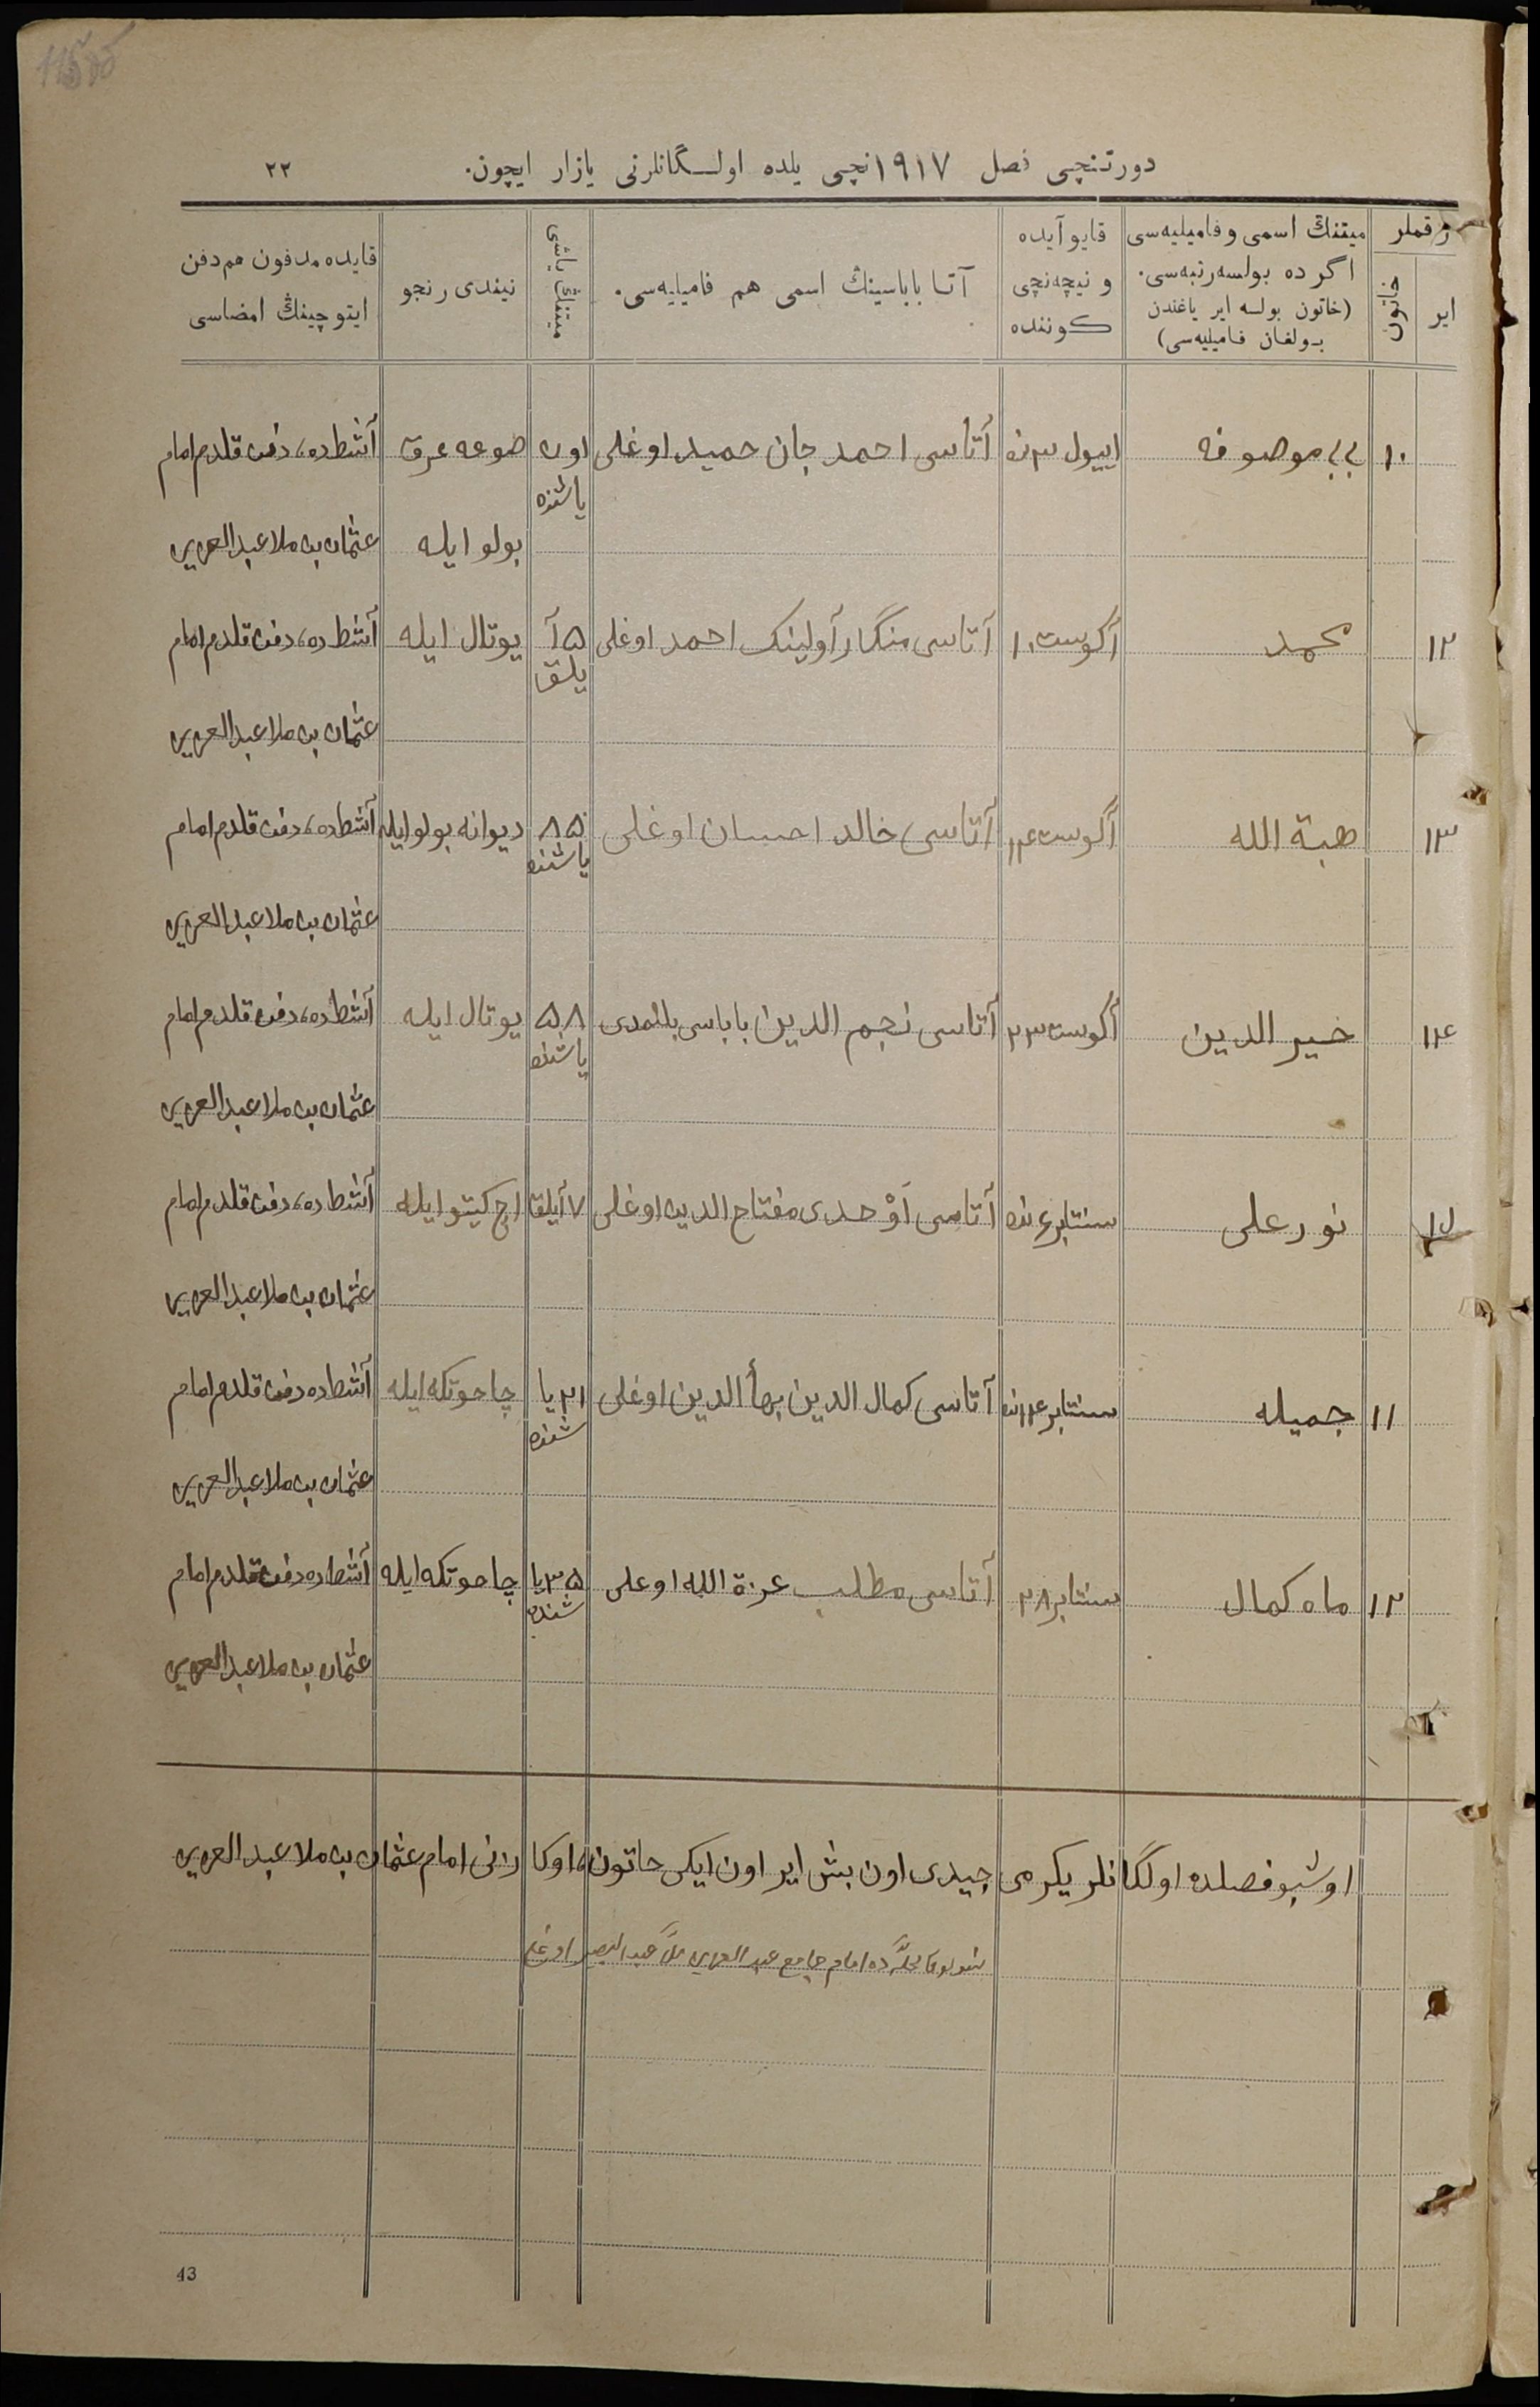 دورتنچی فصل ١٩١٧نچی یلده اولـگانلرنی یازار ایچون. ٢٢
رقملر
ایر
خاتون
میتنڭ اسمی و فامیلیه‌سی
اگر ده بولسه رتبه‌سی.
(خاتون بولسه ایر یاغندن
بولغان فامیلیه‌سی)
قایو آیده
و نیچه‌نچی
کوننده
آتا باباسینڭ اسمی هم فامیلیه‌سی.
میتنڭ یاشی
نیندی رنجو
قایده مدفون هم دفن
ایتو چینڭ امضاسی
١٠ بی بی موصوفه اییول ٣ نده آتاسی احمد جان حمید اوغلی اون یاشنده عرق آشطاده دفن قلدم امام
بولو ایله عثمان بن ملا عبد العزیز
١٢ محمد آگوست ١٠ آتاسی منگار آولینک احمد اوغلی ٥آ یلق یوتال ایله آشطاده دفن قلدم امام
عثمان بن ملا عبد العزیز
١٣ هبة الله آگوست ١٤ آتاسی خالد احسان اوغلی ٨٥ یاشنده دیوانه بولو ایله آشطاده دفن قلدم امام
عثمان بن ملا عبد العزیز
١٤ خیر الدین آگوست ٢٣ آتاسی نجم الدین باباسی بلنمدی ٥٨ یاشنده یوتال ایله آشطاده دفن قلدم امام
عثمان بن ملا عبد العزیز
١٥ نور علی سنتابر ٤ نده آتاسی اَوْحدی مفتاح الدین اوغلی ٧ آیلق اچ کیتو ایله آشطاده دفن قلدم امام
عثمان بن ملا عبد العزیز
١١ جمیله سنتابر ١٤ نده آتاسی کمال الدین بهأ الدین اوغلی ٢١ یاشنده چاحوتکه ایله آشطاده دفن قلدم امام
عثمان بن ملا عبد العزیز
١٢ ماه کمال سنتابر ٢٨ آتاسی مطلب عزة الله اوغلی ٣٥ یاشنده چاحوتکه ایله آشطاده دفن قلدم امام
عثمان بن ملا عبد العزیز
اوشبو فصلده اولگانلر یکرمی جیدی اون بش ایر اون ایکی خاتون امام عثمان بن ملا عبد العزیز
امام جامع عبد العزیز ملا عبد النصیر اوغلی
43